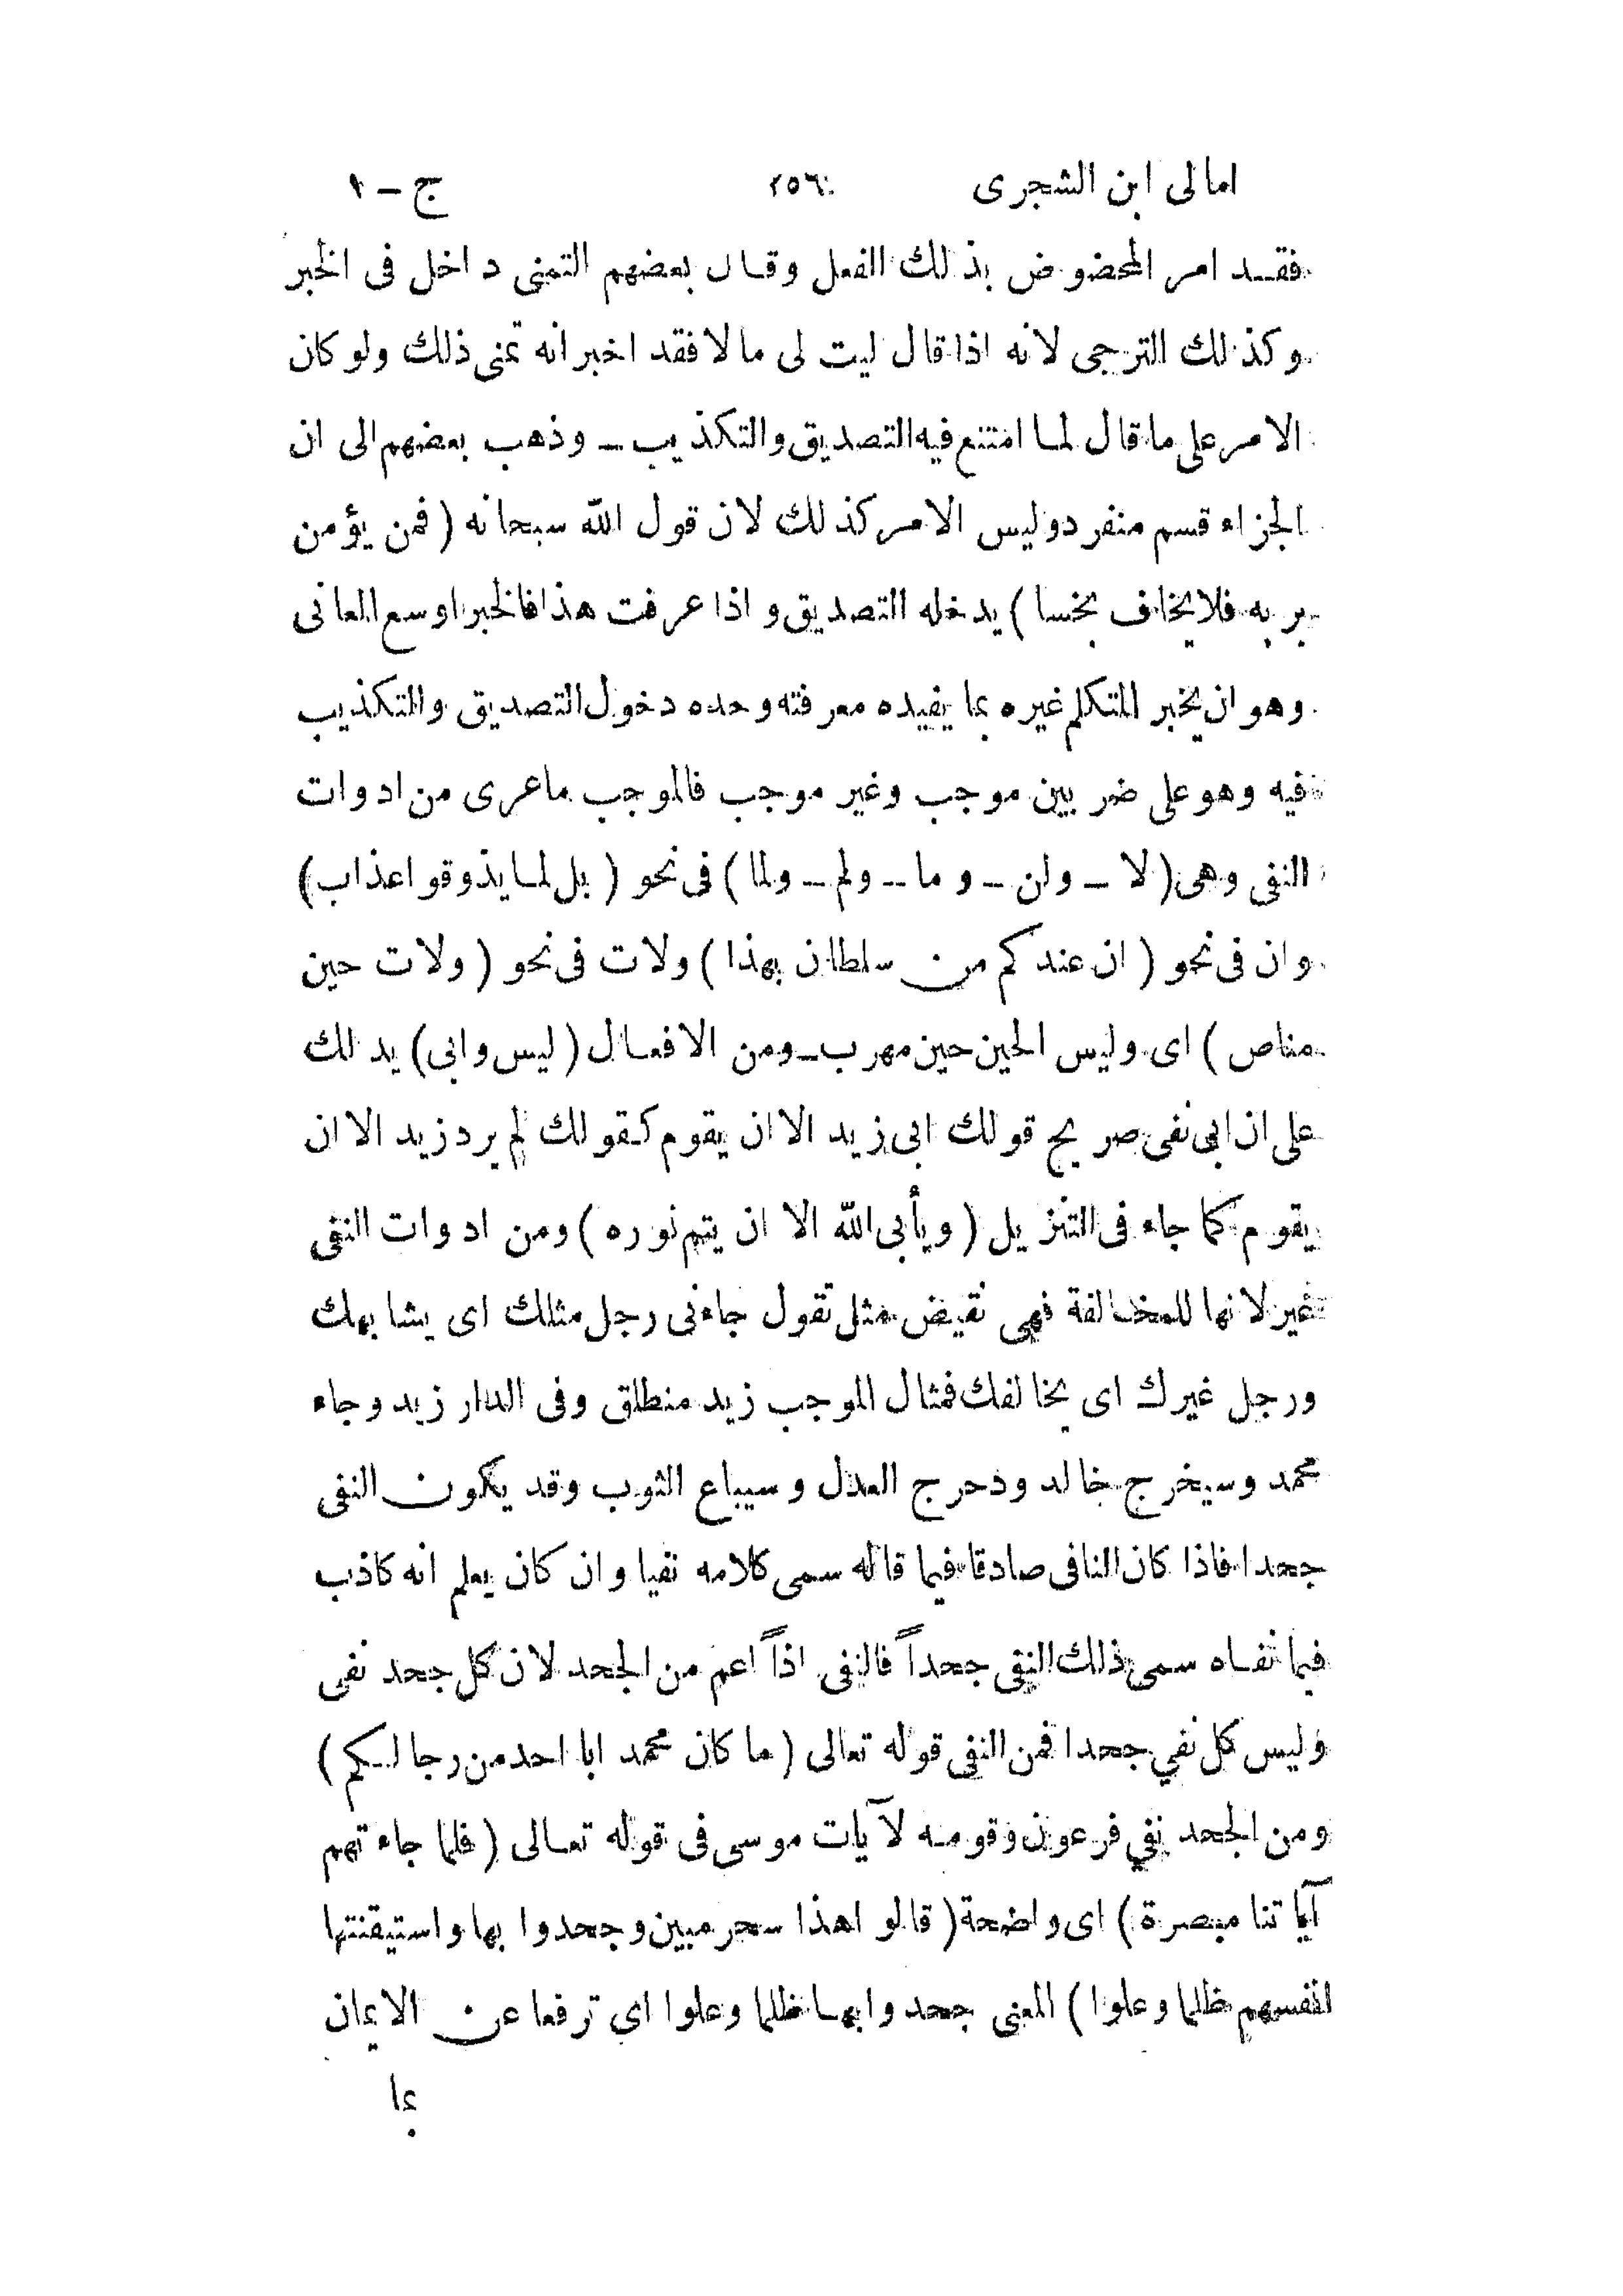 امالى ابن الشجرى ٢٥٦ ج – ١
فقد امر المحضوض بذلك الفعل وقال بعضهم التمنى داخل فى الخبر
وكذلك الترجى لانه اذا قال ليت لى مالا فقد اخبر انه تمنى ذلك ولوكان
الامر على ما قال لما امتنع فيه التصديق والتكذيب – وذهب بعضهم الى ان
الجزاء قسم منفرد وليس الامر كذلك لان قول الله سبحانه ( فمن يؤمن
بربه فلا يخاف بخسا ) يدخله التصديق و اذا عرفت هذا فالخبر اوسع المعانى
وهو ان يخبر المتكلم غيره بما يفيده معرفته وحده دخول التصديق والتكذيب
فيه وهو على ضربين موجب وغير موجب فالموجب ما عرى من ادوات
النفى وهى ( لا – ولن – و ما – ولم – ولما ) فى نحو ( بل لما يذوقوا عذاب )
وان فى نحو ( ان عندكم من سلطان بهذا ) ولات فى نحو ( ولات حين
مناص ) اى وليس الحين حين مهرب – ومن الافعال ( ليس وابى ) يدلك
على ان ابى نفى صريح قولك ابى زيد الا ان يقوم كقولك لم يرد زيد الا ان
يقوم كما جاء فى التنزيل ( ويأبى الله الا ان يتم نوره ) ومن ادوات النفى
غير لانها للمخالفة فهى نقيض مثل تقول جاءنى رجل مثلك اى يشابهك
ورجل غيرك اى يخالفك فمثال الموجب زيد منطلق وفى الدار زيد وجاء
محمد وسيخرج خالد ودحرج العدل وسيباع الثوب وقد يكون النفى
جحدا فاذا كان النافى صادقا فيما قاله سمى كلامه نفيا وان كان يعلم انه كاذب
فيما نفاه سمى ذلك النفى جحداً فالنفى اذاً اعم من الجحد لان كل جحد نفى
وليس كل نفي جحدا فمن النفى قوله تعالى ( ما كان محمد ابا احد من رجالكم )
ومن الجحد نفي فرعون وقومه لآيات موسى فى قوله تعالى ( فلما جاءتهم
آياتنا مبصرة ) اى واضحة ( قالوا هذا سحر مبين وجحدوا بها واستيقنتها
انفسهم ظلما وعلوا ) المعنى جحدوا بها ظلما وعلوا اى ترفعا عن الايمان
بما